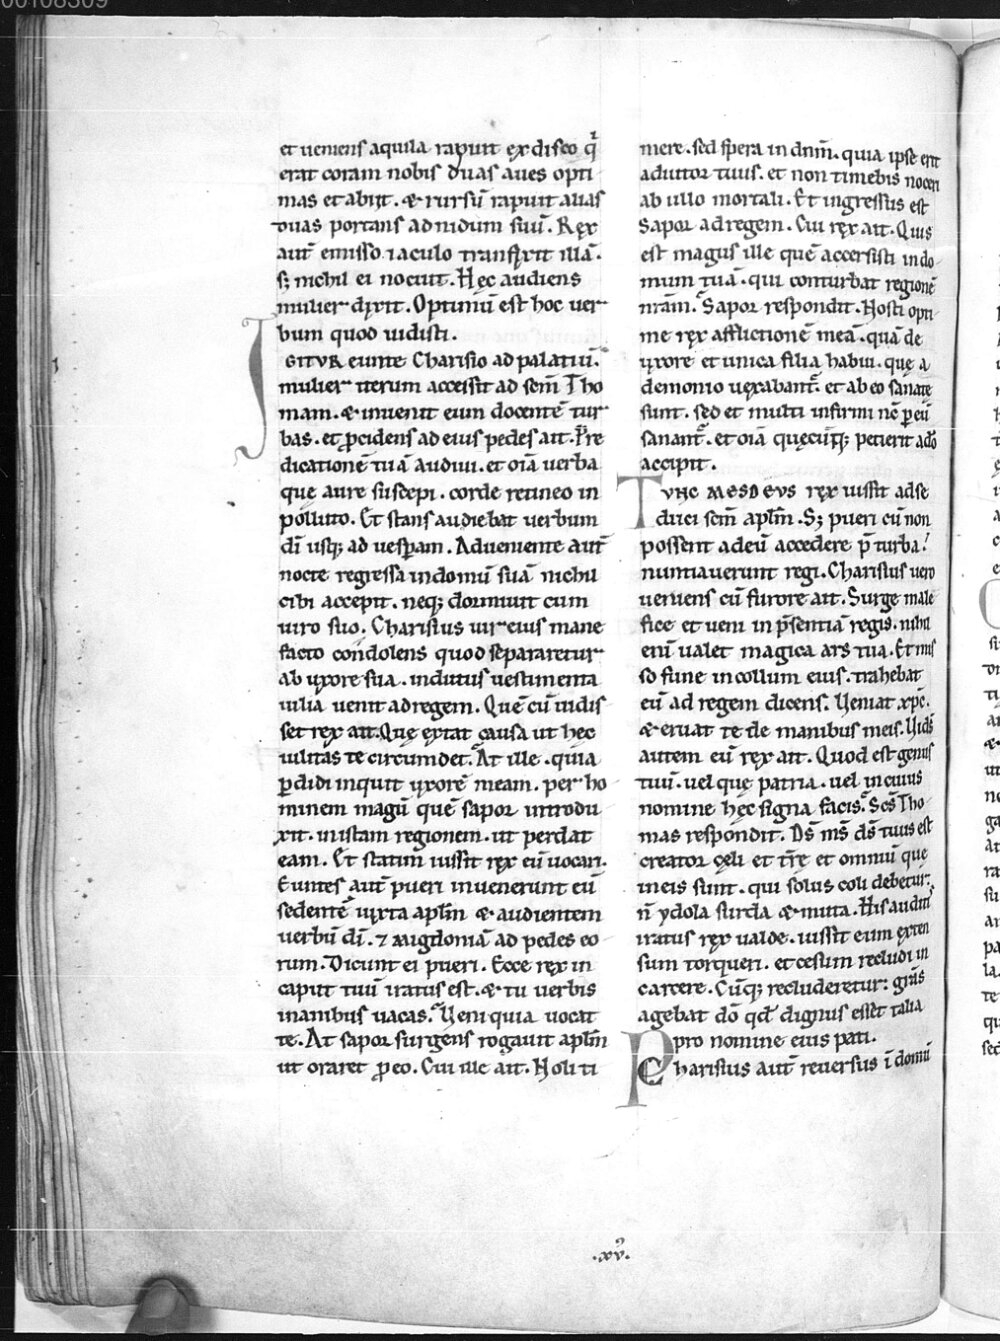 00108309
et ueniens aquila rapuit ex disco q̄
erat coram nobis duas aues opti
mas et abiit. & rursū rapuit alias
duas portans ad nidum suū. Rex
aut̄ emisso iaculo transfixit illā.
s; nichil ei nocuit. Hęc audiens
mulier dixit. Optimū est hoc uer
bum quod uidisti.
IGITVR eunte Charisio ad palatiū.
mulier iterum accessit ad scm̄ Tho
mam. & inuenit eum docentē tur
bas. et p̱cidens ad eius pedes ait. Pre
dicationē tuā audiui. et oīa uerba
que aure suscepi. corde retineo in
polluto. Et stans audiebat uerbum
dī usq; ad uesꝑam. Adueniente aut̄
nocte regressa in domū suā nichil
cibi accepit. neq; dormiuit cum
uiro suo. Charisius uir eius mane
facto condolens quod separaretur
ab uxore sua. indutus uestimenta
uilia uenit ad regem. Quē cū uidis
set rex ait. Quę extat causa ut hęc
uilitas te circumdet. At ille. quia
ꝑdidi inquit uxorē meam. per ho
minem magū quē sapor introdu
xit. in istam regionem. ut perdat
eam. Et statim iussit rex eū uocari.
Euntes aut̄ pueri inuenerunt eū
sedentē iuxta aplm̄ & audientem
uerbū dī. ⁊ migdoniā ad pedes eo
rum. Dicunt ei pueri. Ecce rex in
caput tuū iratus est. & tu uerbis
inanibus uacas. Ueni quia uocat
te. At sapor surgens rogauit aplm̄
ut oraret ꝓ eo. Cui ille ait. Noli ti
mere. sed spera in dn̄m. quia ipse erit
adiutor tuus. et non timebis noceri
ab ullo mortali. Et ingressus est
Sapor ad regem. Cui rex ait. Quis
est magus ille quē accersisti in do
mum tuā. qui conturbat regionē
nr̄am. Sapor respondit. Nosti opti
me rex afflictionē meā. quā de
uxore et unica filia habui. quę a
demonio uexabant̄. et ab eo sanatę
sunt. sed et multi infirmi nc̄ ꝑ eū
sanant̄. et oīa quęcūq; petierit a dō
accipit.
TVNC MESDEVS rex iussit ad se
duci scm̄ aplm̄. S; pueri cū non
possent ad eū accedere p̄ turba!
nuntiauerunt regi. Charisius uero
ueniens cū furore ait. Surge male
fice et ueni in p̄sentiā regis. nihil
enī ualet magica ars tua. Et mis
so fune in collum eius. trahebat
eū ad regem dicens. Ueniat xp̄c.
& eruat te de manibus meis. Uidēs
autem eū rex ait. Quod est genus
tuū. uel quę patria. uel in cuius
nomine hęc signa facis. Scs̄ Tho
mas respondit. Ds̄ ms̄ ds̄ tuus est
creator cęli et tr̄ę et omniū que
in eis sunt. qui solus coli debetur.
n̄ ydola surda & muta. His auditis
iratus rex ualde. iussit eum exten
sum torqueri. et cesum recludi in
carcere. Cūq; recluderetur: grās
agebat dō qd̄ dignus esset talia
pro nomine eius pati.
Charisius aut̄ reuersus ī domū
.xv⁹.